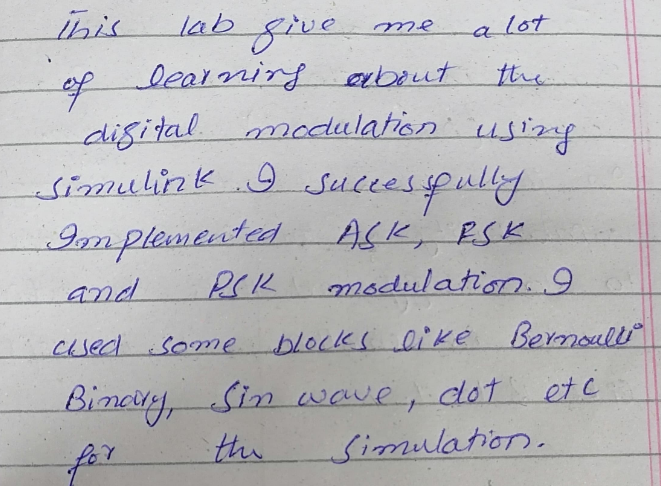 This lab give me a lot
of learning about the
digital modulation using
simulink. I successfully
Implemented ASK, FSK
and PSK modulation. I
used some blocks like Bernoulli
Binary, Sin wave, dot etc
for the simulation.